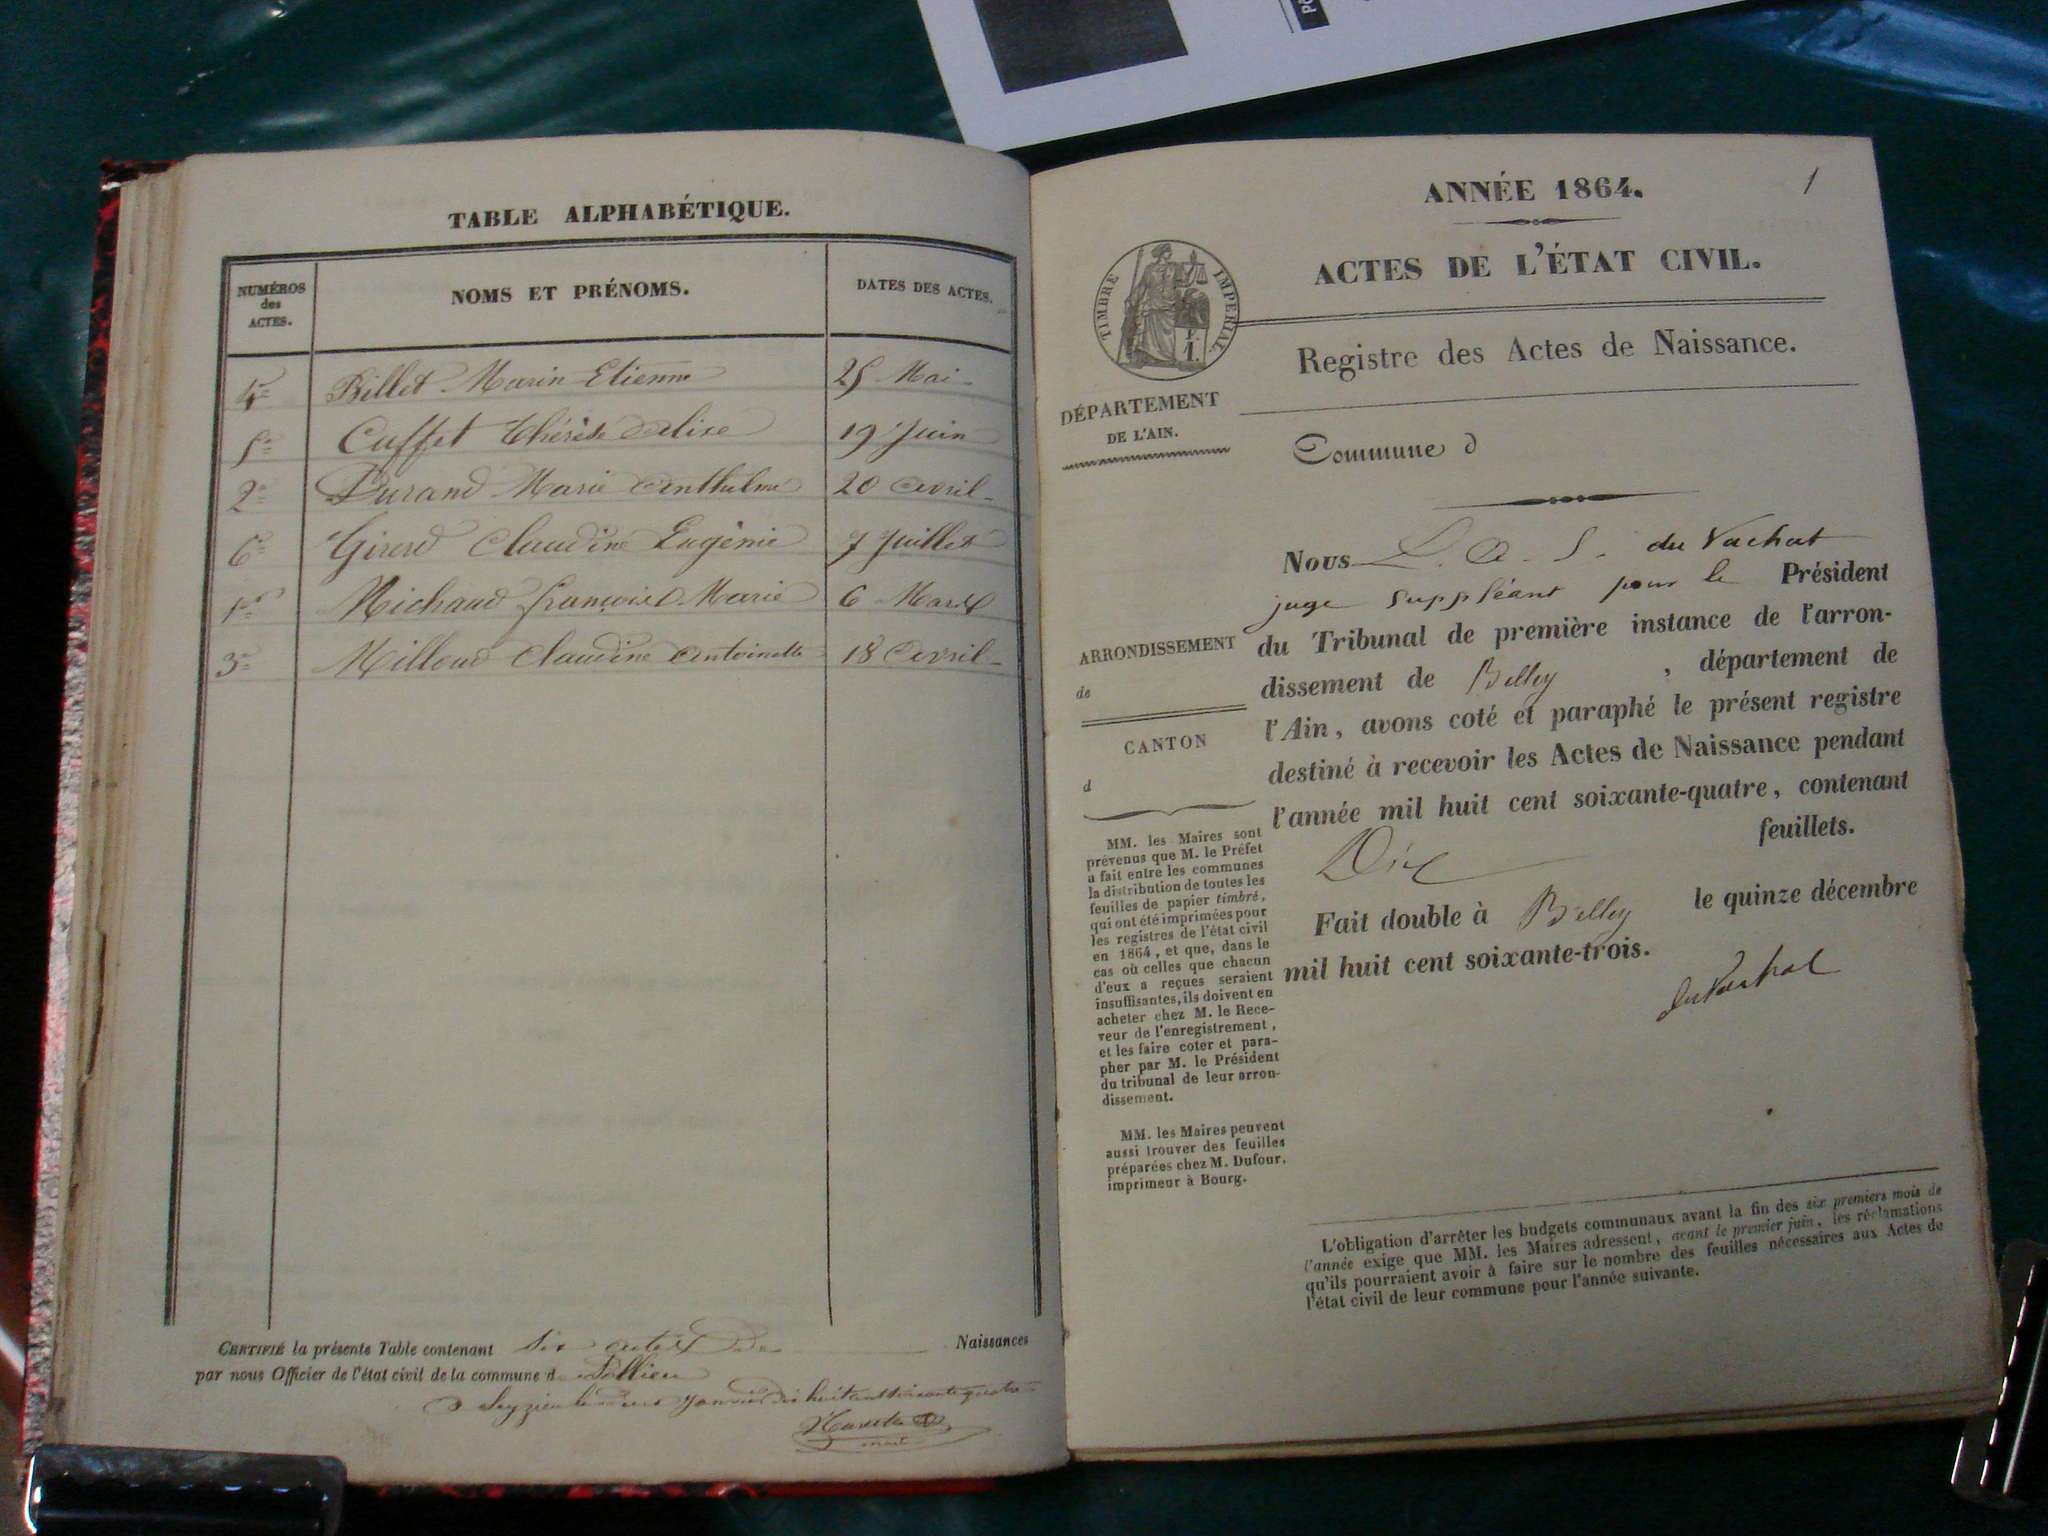 TABLE ALPHABÉTIQUE.
NUMÉROS
des
ACTES.
NOMS ET PRÉNOMS.
DATES DES ACTES.
4e Billet Marin Etienne 25 Mai
5e Cuffet Thérèse 19 Juin
2e Durand Marie Anthelme 20 Avril
6e Girerd Claudine Eugénie 7 Juillet
1er Michaud françoise Marie 6 Mars
3e Milloud Claudine Antoinette 18 Avril
CERTIFIÉ la présente Table contenant six actes de Naissances
par nous Officier de l'état civil de la commune de Pollieu
janvier mil huit cent soixante quatre
1
ANNÉE 1864.
ACTES DE L'ÉTAT CIVIL.
TIMBRE IMPERIAL
1.
Registre des Actes de Naissance.
DÉPARTEMENT
DE L'AIN.
Commune d
Nous L. A. S. du Vachat
juge suppléant pour le Président
du Tribunal de première instance de l'arron-
dissement de Belley , département de
l'Ain, avons coté et paraphé le présent registre
destiné à recevoir les Actes de Naissance pendant
l'année mil huit cent soixante-quatre, contenant
Dix feuillets.
Fait double à Belley le quinze décembre
mil huit cent soixante-trois.
du Vachat
ARRONDISSEMENT
de
CANTON
d
MM. les Maires sont
prévenus que M. le Préfet
a fait entre les communes
la distribution de toutes les
feuilles de papier timbré,
qui ont été imprimées pour
les registres de l'état civil
en 1864, et que, dans le
cas où celles que chacun
d'eux a reçues seraient
insuffisantes, ils doivent en
acheter chez M. le Rece-
veur de l'enregistrement,
et les faire coter et para-
pher par M. le Président
du tribunal de leur arron-
dissement.
MM. les Maires peuvent
aussi trouver des feuilles
préparées chez M. Dufour,
imprimeur à Bourg.
L'obligation d'arrêter les budgets communaux avant la fin des six premiers mois de
l'année exige que MM. les Maires adressent, avant le premier juin, les réclamations
qu'ils pourraient avoir à faire sur le nombre des feuilles nécessaires aux Actes de
l'état civil de leur commune pour l'année suivante.